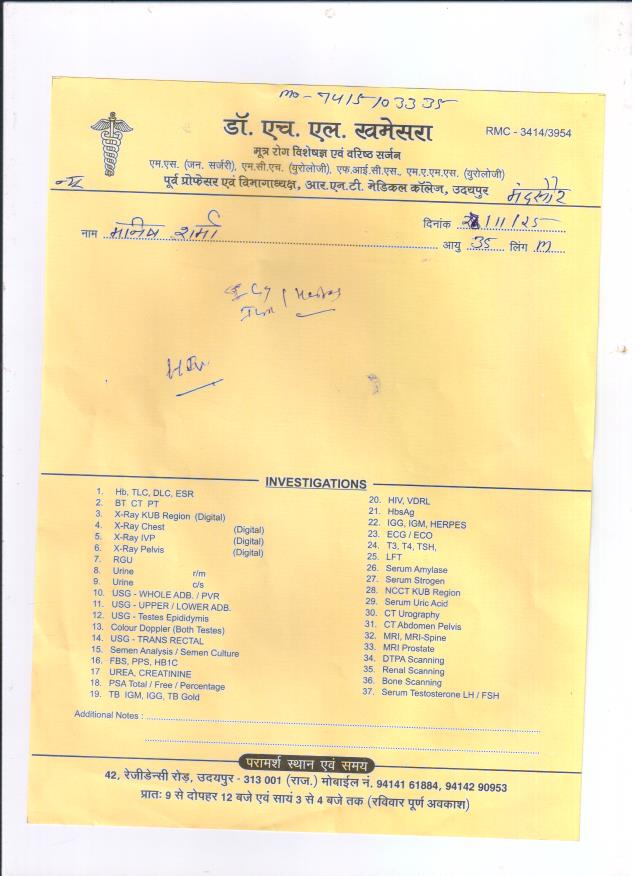 mo - 9415103335
डॉ. एच. एल. खमेसरा
RMC - 3414/3954
मूत्र रोग विशेषज्ञ एवं वरिष्ठ सर्जन
एम.एस. (जन. सर्जरी), एम.सी.एच. (यूरोलोजी), एफ.आई.सी.एस., एम.ए.एम.एस. (यूरोलोजी)
पूर्व प्रोफेसर एवं विभागाध्यक्ष, आर.एन.टी. मेडिकल कॉलेज, उदयपुर
मंदसौर
दिनांक /11/25
नाम मानिष शर्मा आयु 35 लिंग M
IgG / Herpes
IgM
HIV
INVESTIGATIONS
1. Hb, TLC, DLC, ESR
2. BT CT PT
3. X-Ray KUB Region (Digital)
4. X-Ray Chest (Digital)
5. X-Ray IVP (Digital)
6. X-Ray Pelvis (Digital)
7. RGU
8. Urine r/m
9. Urine c/s
10. USG - WHOLE ADB. / PVR
11. USG - UPPER / LOWER ADB.
12. USG - Testes Epididymis
13. Colour Doppler (Both Testes)
14. USG - TRANS RECTAL
15. Semen Analysis / Semen Culture
16. FBS, PPS, HB1C
17 UREA, CREATININE
18. PSA Total / Free / Percentage
19. TB IGM, IGG, TB Gold
20. HIV, VDRL
21. HbsAg
22. IGG, IGM, HERPES
23. ECG / ECO
24. T3, T4, TSH,
25. LFT
26. Serum Amylase
27. Serum Strogen
28. NCCT KUB Region
29. Serum Uric Acid
30. CT Urography
31. CT Abdomen Pelvis
32. MRI, MRI-Spine
33. MRI Prostate
34. DTPA Scanning
35. Renal Scanning
36. Bone Scanning
37. Serum Testosterone LH / FSH
Additional Notes :
परामर्श स्थान एवं समय
42, रेजीडेन्सी रोड़, उदयपुर - 313 001 (राज.) मोबाईल नं. 94141 61884, 94142 90953
प्रातः 9 से दोपहर 12 बजे एवं सायं 3 से 4 बजे तक (रविवार पूर्ण अवकाश)